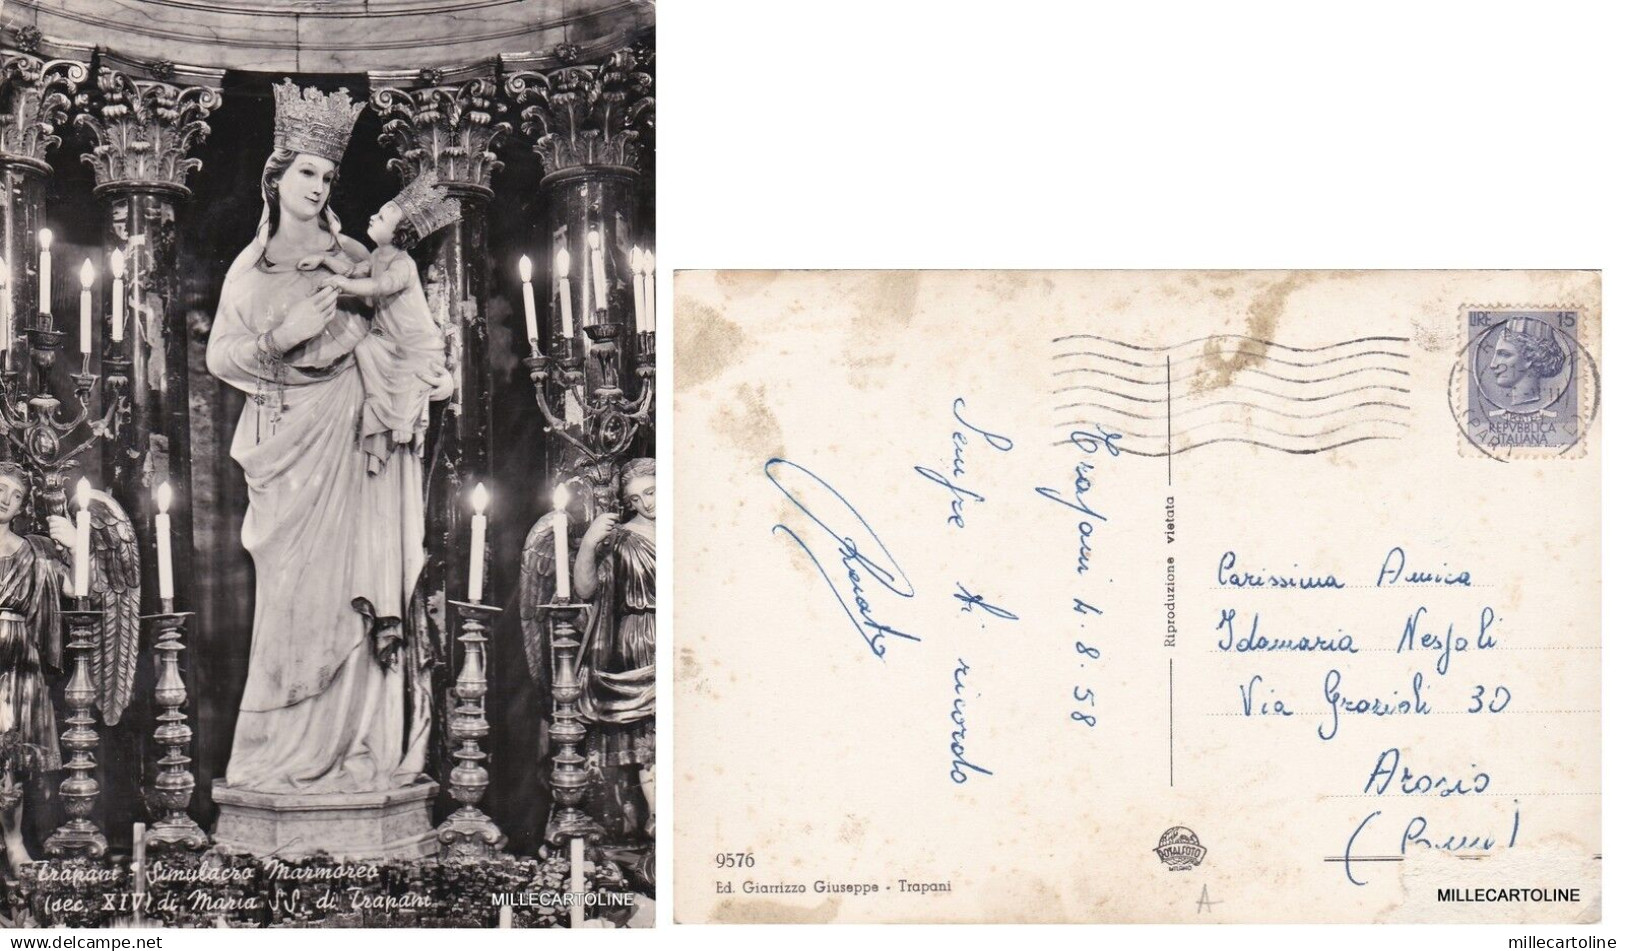 Trapani - Simulacro Marmoreo
(sec. XIV) di Maria SS. di Trapani
MILLECARTOLINE
Trapani 4.8.58
Sempre ti ricordo
Renato
Riproduzione vietata
LIRE 15
REPVBBLICA
ITALIANA
Carissima Amica
Idamaria Nespoli
Via Grazioli 30
Arosio
9576
Ed. Giarrizzo Giuseppe - Trapani
ROTALFOTO
MILANO
A
MILLECARTOLINE
delcampe.net
millecartoline